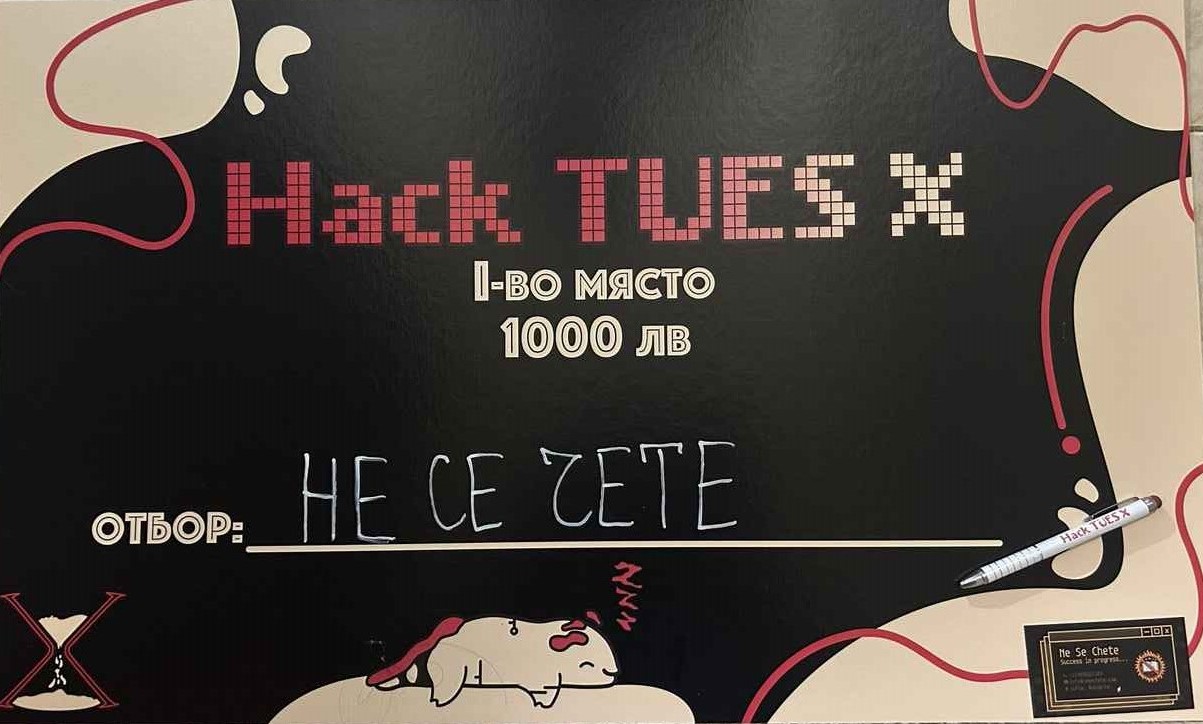 Hack TUES X
I-ВО МЯСТО
1000 ЛВ
ОТБОР: НЕ СЕ ЧЕТЕ
ZZZZ
Hack TUES X
Me Se Chete
Success in progress...